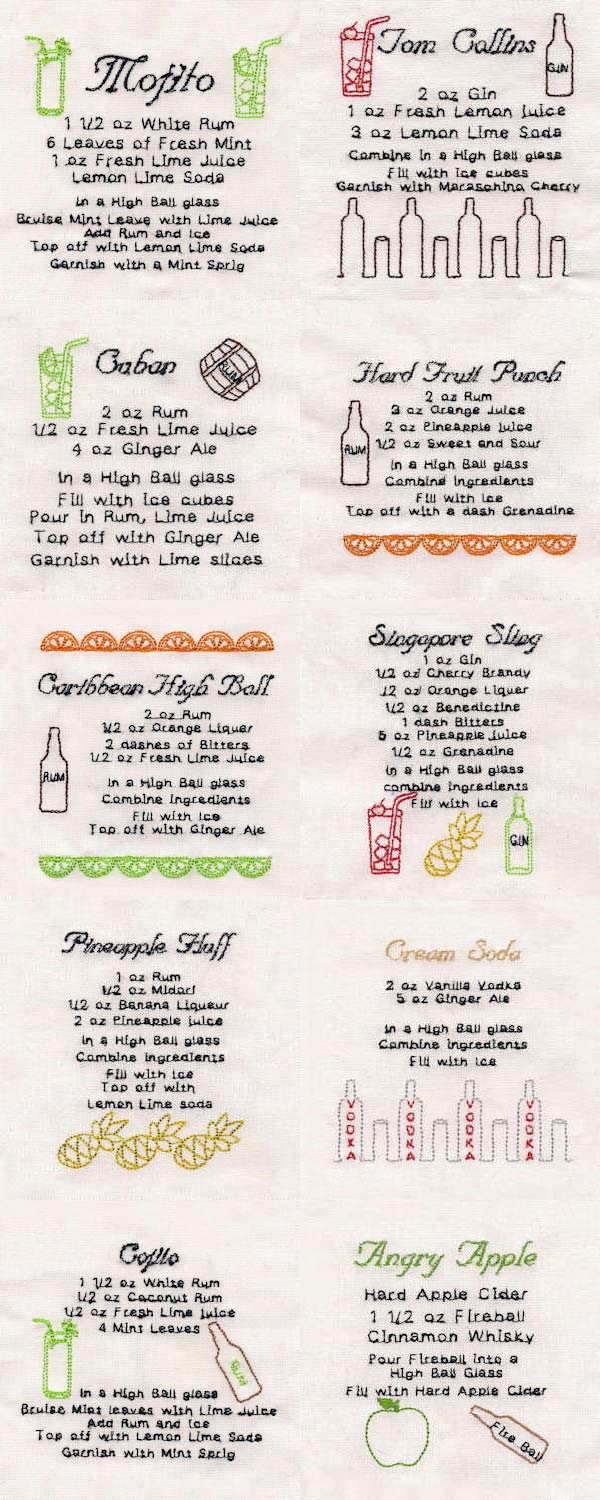 Mojito
1 1/2 oz White Rum
6 Leaves of Fresh Mint
1 oz Fresh Lime Juice
Lemon Lime Soda
In a High Ball glass
Bruise Mint Leave with Lime Juice
Add Rum and Ice
Top off with Lemon Lime Soda
Garnish with a Mint Sprig
Tom Collins
GIN
2 oz Gin
1 oz Fresh Lemon Juice
3 oz Lemon Lime Soda
Combine in a High Ball glass
Fill with Ice cubes
Garnish with Maraschino Cherry
Cuban
RUM
2 oz Rum
1/2 oz Fresh Lime Juice
4 oz Ginger Ale
In a High Ball glass
Fill with Ice cubes
Pour in Rum, Lime Juice
Top off with Ginger Ale
Garnish with Lime slices
Hard Fruit Punch
2 oz Rum
3 oz Orange Juice
2 oz Pineapple Juice
1/2 oz Sweet and Sour
RUM
In a High Ball glass
Combine Ingredients
Fill with Ice
Top off with a dash Grenadine
Caribbean High Ball
2 oz Rum
1/2 oz Orange Liquer
2 dashes of Bitters
1/2 oz Fresh Lime Juice
RUM
In a High Ball glass
Combine Ingredients
Fill with Ice
Top off with Ginger Ale
Singapore Sling
1 oz Gin
1/2 oz Cherry Brandy
1/2 oz Orange Liquer
1/2 oz Benedictine
1 dash Bitters
5 oz Pineapple Juice
1/2 oz Grenadine
In a High Ball glass
combine Ingredients
Fill with Ice
GIN
Pineapple Fluff
1 oz Rum
1/2 oz Midori
1/2 oz Banana Liqueur
2 oz Pineapple Juice
In a High Ball glass
Combine Ingredients
Fill with Ice
Top off with
Lemon Lime soda
Cream Soda
2 oz Vanilla Vodka
5 oz Ginger Ale
In a High Ball glass
Combine Ingredients
Fill with Ice
VODKA VODKA VODKA VODKA
Cojito
1 1/2 oz White Rum
1/2 oz Coconut Rum
1/2 oz Fresh Lime Juice
4 Mint Leaves
RUM
In a High Ball glass
Bruise Mint leaves with Lime Juice
Add Rum and Ice
Top off with Lemon Lime Soda
Garnish with Mint Sprig
Angry Apple
Hard Apple Cider
1 1/2 oz Fireball
Cinnamon Whisky
Pour Fireball into a
High Ball Glass
Fill with Hard Apple Cider
Fire Ball